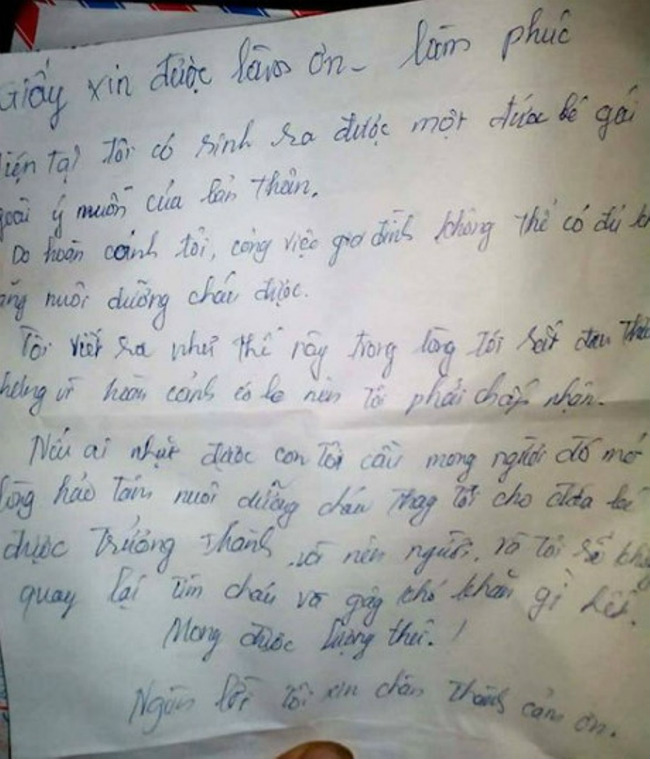 Giấy xin được làm ơn - làm phúc
Hiện tại tôi có sinh ra được một đứa bé gái
ngoài ý muốn của bản thân.
Do hoàn cảnh tôi, công việc gia đình không thể có đủ kh
ăng nuôi dưỡng cháu được.
Tôi viết ra như thế này trong lòng tôi rất đau
nhưng vì hoàn cảnh éo le nên tôi phải chấp nhận.
Nếu ai nhặt được con tôi cầu mong người đó mở
lòng hảo tâm nuôi dưỡng cháu thay tôi cho đứa bé
được trưởng thành nên người, và tôi sẽ khô
quay lại tìm cháu và gây khó khăn gì hết.
Mong được lượng thứ.!
Ngàn lời tôi xin chân thành cảm ơn.